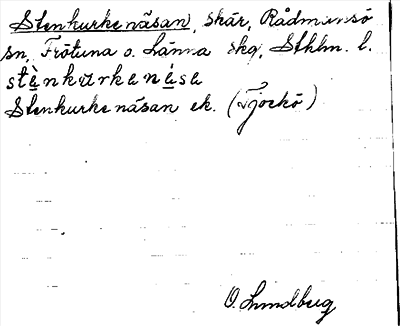 Stenkurkenäsan, skär, Rådmansö
sn, Frötuna o. Länna skg, Sthlm. l.
stènkurkenása
Stenkurkenäsan ek. (Tjockö)
O. Lundberg